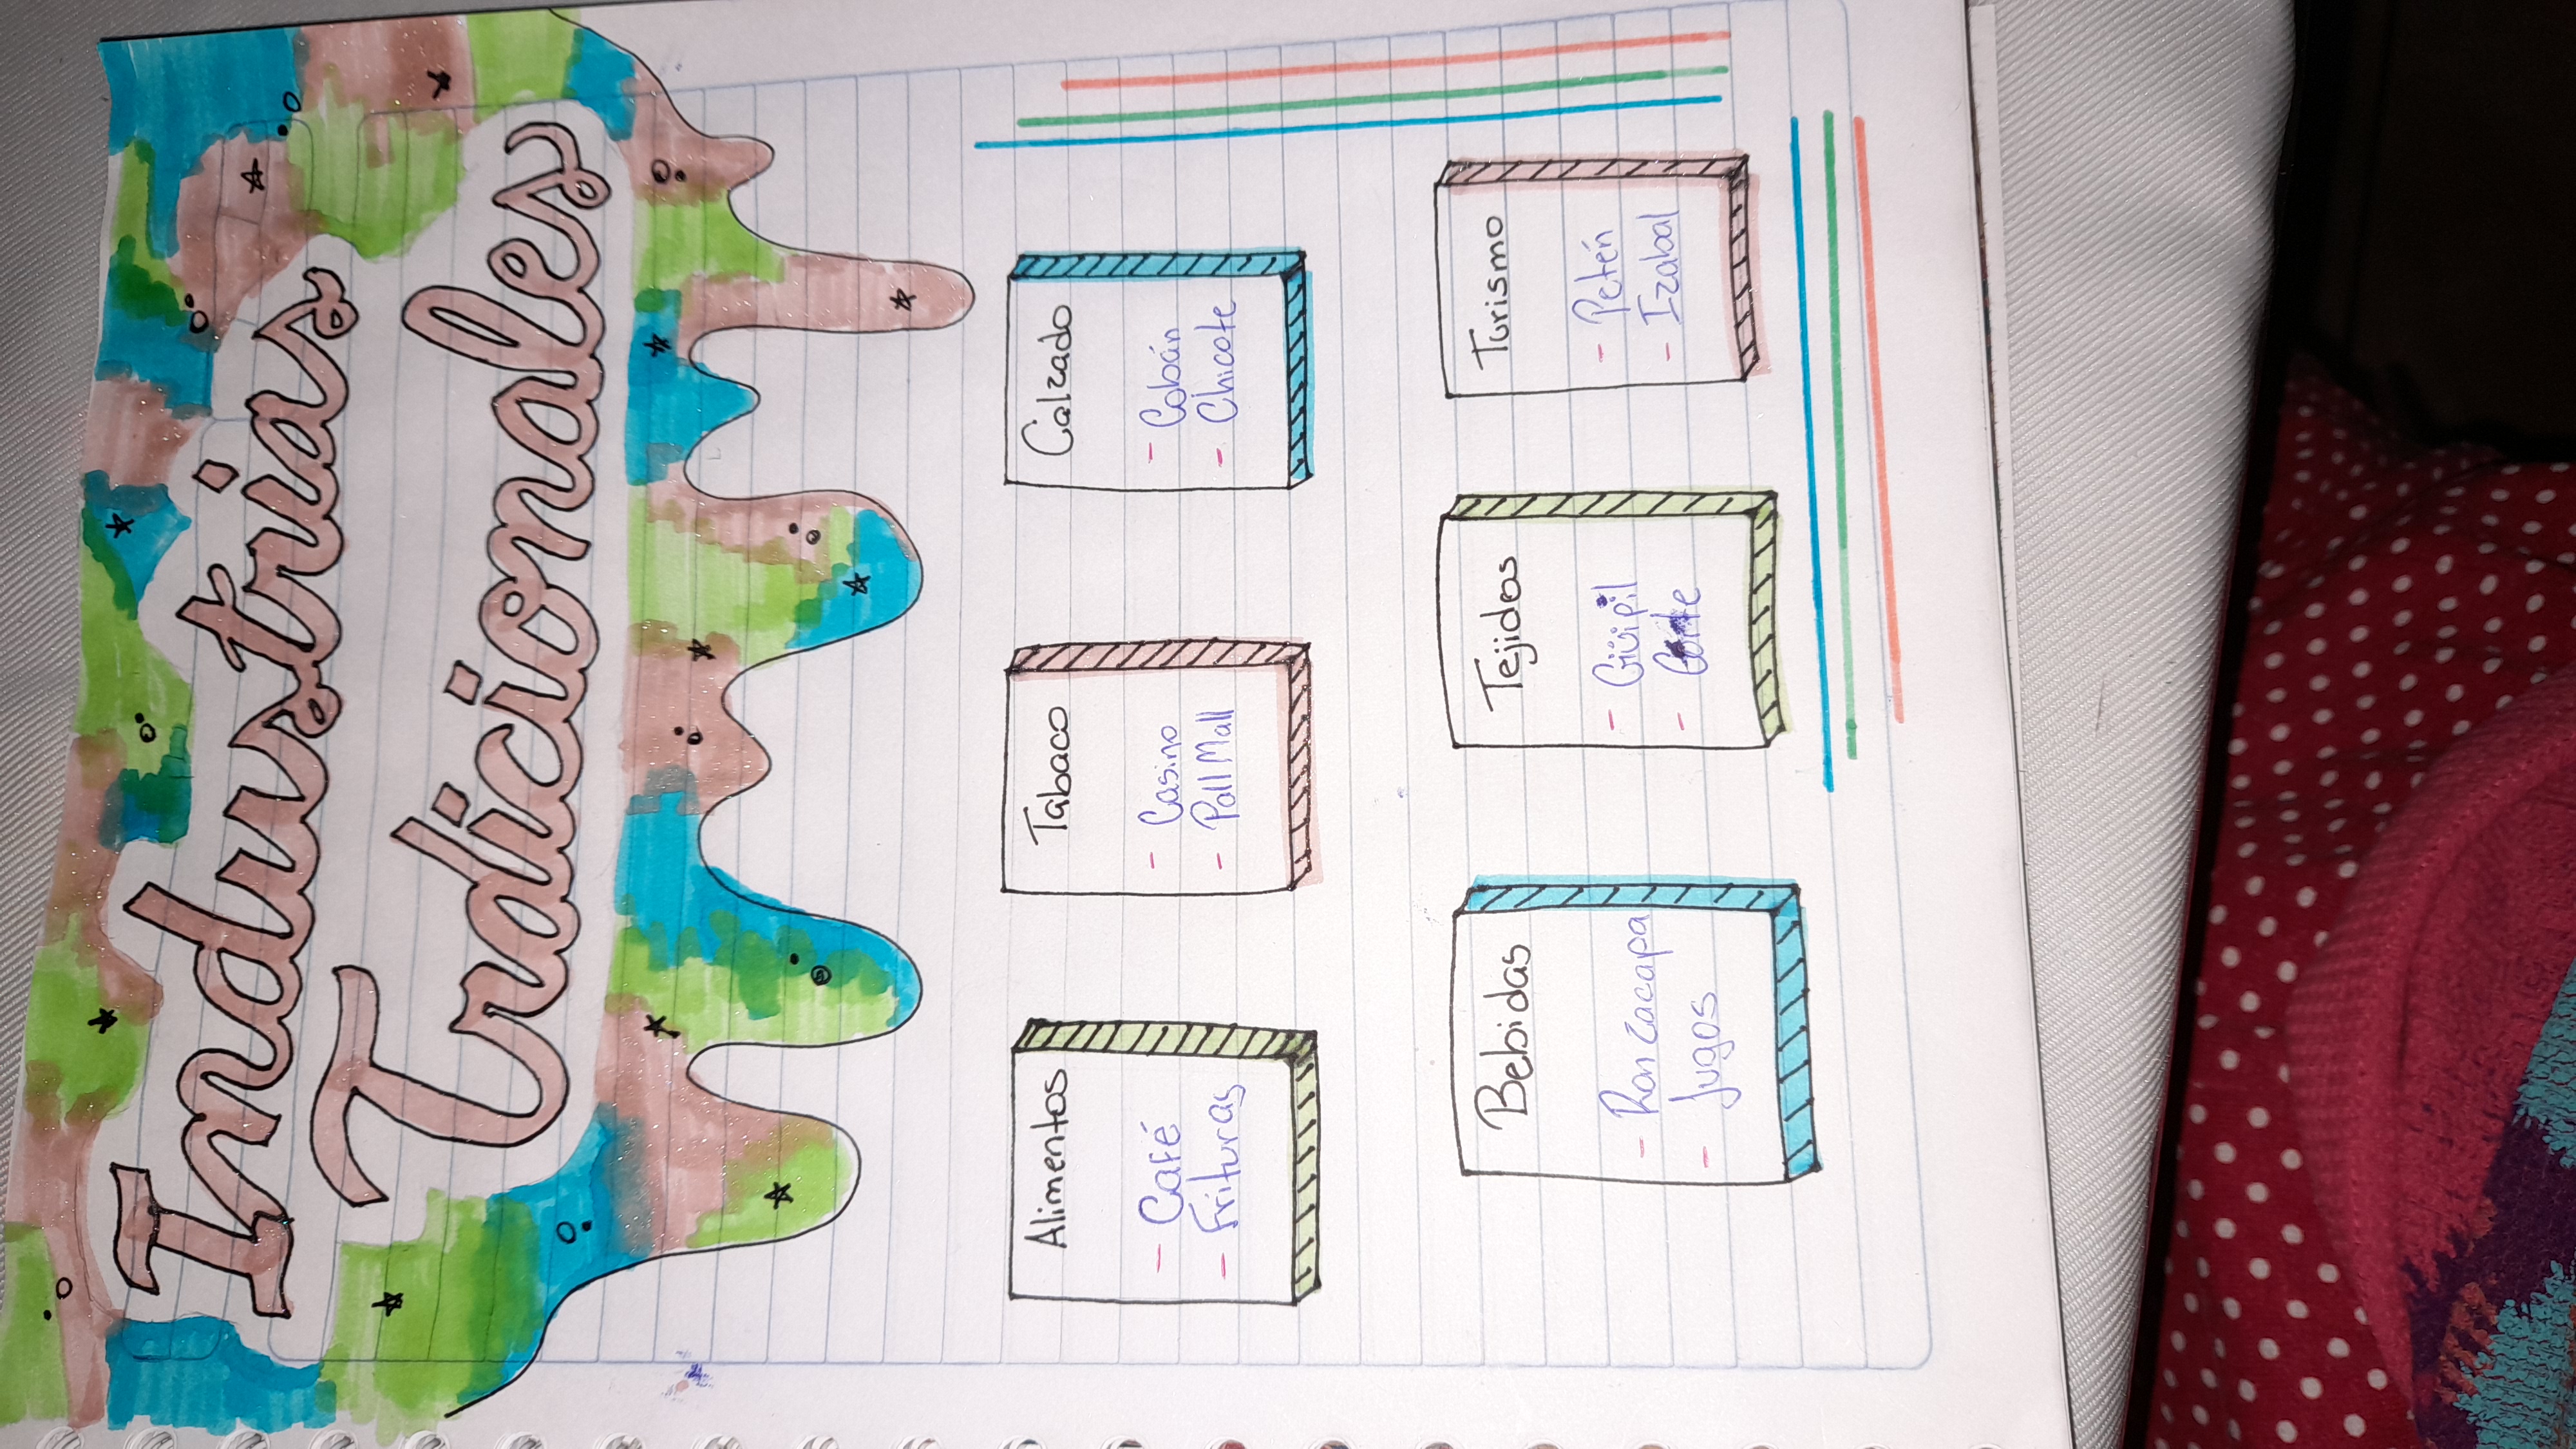 Industrias
Tradicionales
Alimentos
- Café
- Frituras
Tabaco
- Casino
- Pall Mall
Calzado
- Cobán
- Chicote
Bebidas
- Ron Zacapa
- Jugos
Tejidos
- Güipil
- Corte
Turismo
- Petén
- Izabal